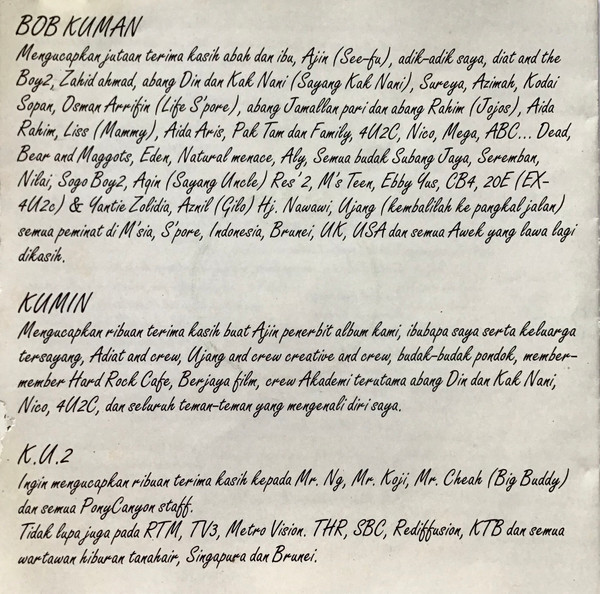 BOB KUMAN
Mengucapkan jutaan terima kasih abah dan ibu, Ajin (See-fu), adik-adik saya, diat and the
Boy2, Zahid ahmad, abang Din dan Kak Nani (Sayang Kak Nani), Sureya, Azimah, Kodai
Sopan, Osman Arrifin (Life S'pore), abang Jamallan pari dan abang Rahim (Jojos), Aida
Rahim, Liss (Mammy), Aida Aris, Pak Tam dan Family, 4U2C, Nico, Mega, ABC... Dead,
Bear and Maggots, Eden, Natural menace, Aly, Semua budak Subang Jaya, Seremban,
Nilai, Sogo Boy2, Aqin (Sayang Uncle) Res' 2, M's Teen, Ebby Yus, CB4, 20E (EX-
4U2c) & Yantie Zolidia, Aznil (Gilo) Hj. Nawawi, Ujang (kembalilah ke pangkal jalan)
semua peminat di M'sia, S'pore, Indonesia, Brunei, UK, USA dan semua Awek yang lawa lagi
dikasih.
KUMIN
Mengucapkan ribuan terima kasih buat Ajin penerbit album kami, ibubapa saya serta keluarga
tersayang, Adiat and crew, Ujang and crew creative and crew, budak-budak pondok, member-
member Hard Rock Cafe, Berjaya film, crew Akademi terutama abang Din dan Kak Nani,
Nico, 4U2C, dan seluruh teman-teman yang mengenali diri saya.
K.U.2
Ingin mengucapkan ribuan terima kasih kepada Mr. Ng, Mr. Koji, Mr. Cheah (Big Buddy)
dan semua PonyCanyon staff.
Tidak lupa juga pada RTM, TV3, Metro Vision. THR, SBC, Rediffusion, KTB dan semua
wartawan hiburan tanahair, Singapura dan Brunei.